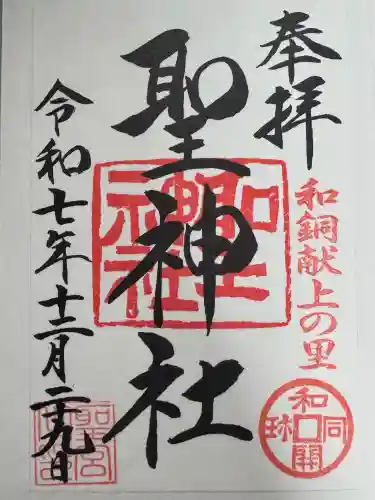 奉拝
和銅献上の里
和同開珎
聖神社
聖神社
令和七年十二月二十九日